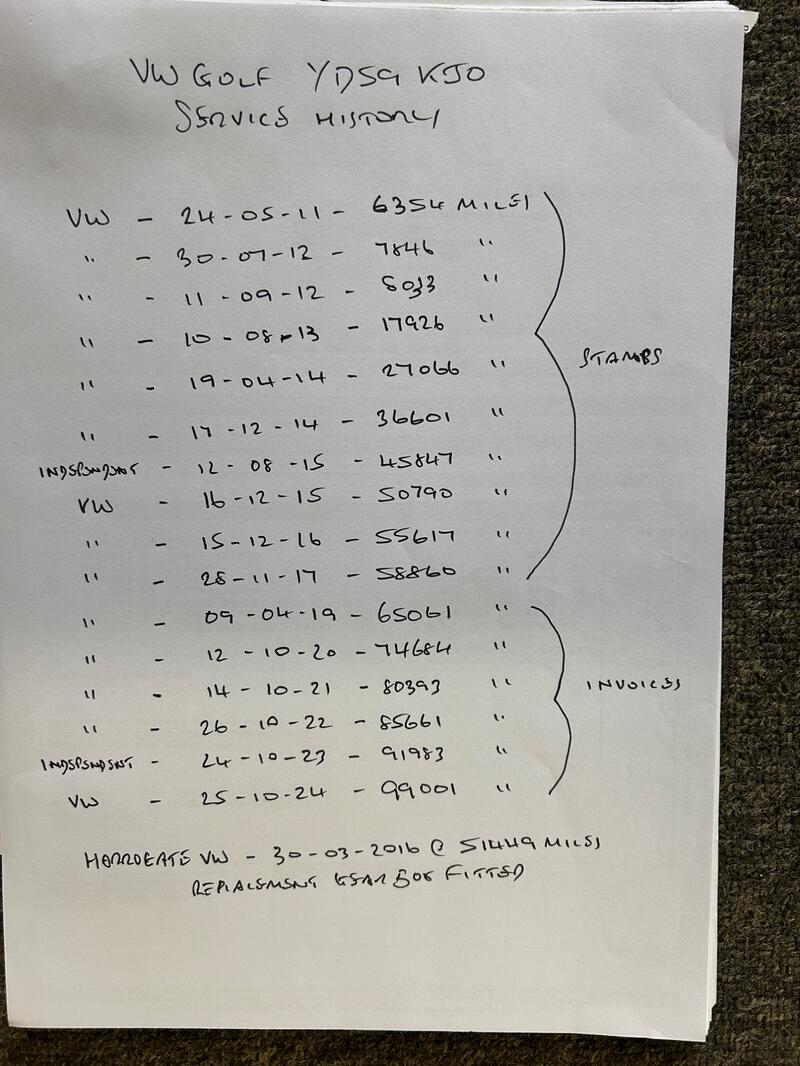 VW GOLF YD59 KJO
SERVICE HISTORY
VW - 24-05-11 - 6354 MILES
" - 30-07-12 - 7846 "
" - 11-09-12 - 8033 "
" - 10-08-13 - 17926 "
" - 19-04-14 - 27066 "
STAMPS
" - 17-12-14 - 36601 "
INDEPENDENT - 12-08-15 - 45847 "
VW - 16-12-15 - 50790 "
" - 15-12-16 - 55617 "
" - 28-11-17 - 58860 "
" - 09-04-19 - 65061 "
" - 12-10-20 - 74684 "
" - 14-10-21 - 80393 "
INVOICES
" - 26-10-22 - 85661 "
INDEPENDENT - 24-10-23 - 91983 "
VW - 25-10-24 - 99001 "
HARROGATE VW - 30-03-2016 @ 51449 MILES
REPLACEMENT GEAR BOX FITTED